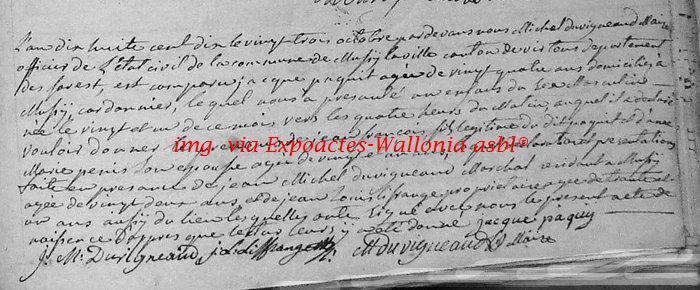 L'an dix huite cent dix le vingt trois octobre par devans nous Michel duvigneaud Maire
officier de L'état civil de la commune de Mussy la ville canton de virtons departement
des forest, est comparu jacque paquit agee de vingt quatre ans domicilies a
Mussy, cordonnier, lequel nous a presenté un enfans du sex Masculin
née le vingt et un de ce mois vers les quatre heurs du Matin, auquel il a declaré
vouloir donner françois, fils legitime du dit paquit et de
Marie penis son epouse agee de vingt un ans,
faite en presence de jean Michel duvigneaud Marechal residant a Mussy
agee de vingt deux ans, et de jean Louis lifrange proprietaire agee de trente et
un ans aussy du lieu lesquelles onte signé avec nous le present acte de
naissance D'apres que lecture leurs y a été donné, jacque paquy
J: M: Duvigneaud j: L: Liffrange M duvigneaud Maire
img. via Expoactes-Wallonia asbl®